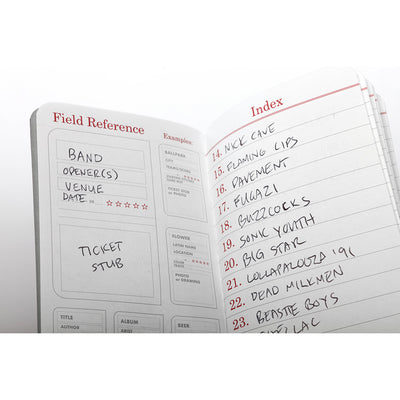 Field Reference
Examples:
BAND
OPENER(S)
VENUE
DATE
TICKET
STUB
BALLPARK
CITY
TEAMS/SCORE
TICKET STUB
OR PHOTO
FLOWER
LATIN NAME
LOCATION
PHOTO
or DRAWING
TITLE
AUTHOR
ALBUM
ARTIST
BEER
Index
14. NICK CAVE
15. FLAMING LIPS
16. PAVEMENT
17. FUGAZI
18. BUZZCOCKS
19. SONIC YOUTH
20. BIG STAR
21. LOLLAPALOOZA '91
22. DEAD MILKMEN
23. BEASTIE BOYS